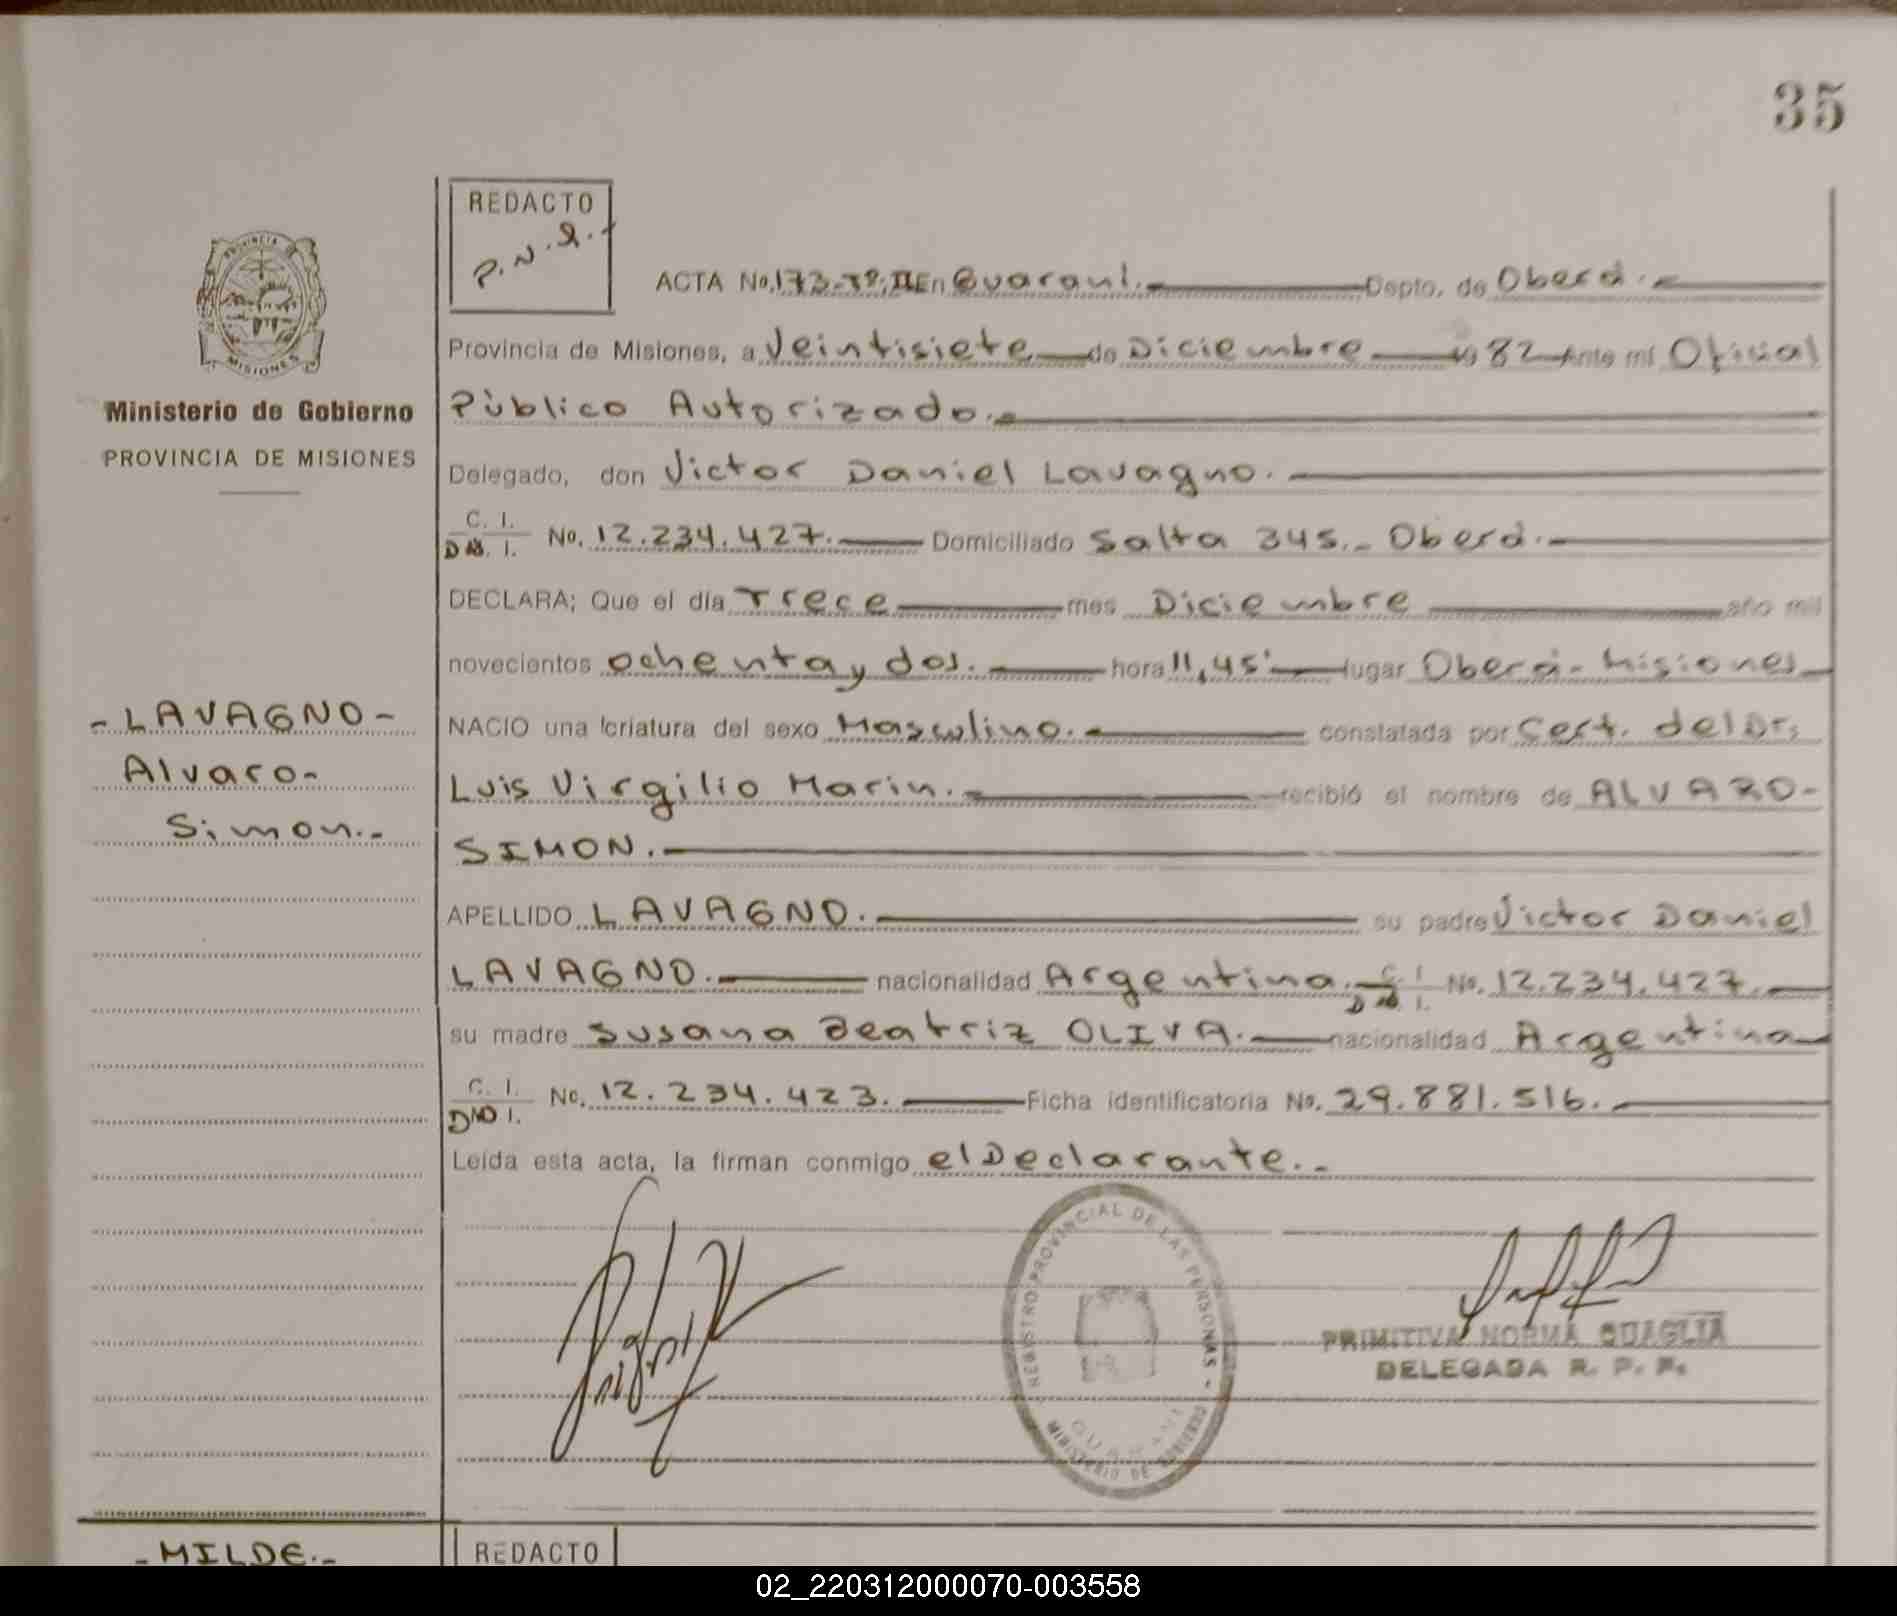 35
REDACTO
P.N.Q.-
PROVINCIA
MISIONES
Ministerio de Gobierno
PROVINCIA DE MISIONES
ACTA No. 173-Tº:II En Guaraní. Depto. de Oberá.-
Provincia de Misiones, a Veintisiete de Diciembre 19 82 Ante mí Oficial
Pùblico Autorizado.
Delegado, don Victor Daniel Lavagno.
C. I.
D.N. I. No. 12.234.427. Domiciliado Salta 345.- Oberà.-
DECLARA; Que el día Trece mes Diciembre año mil
novecientos ochenta y dos. hora 11,45' lugar Oberá-Misiones
- LAVAGNO -
Alvaro-
Simon.-
NACIO una criatura del sexo Masculino. constatada por Cert. del Dr;
Luis Virgilio Marin. recibió el nombre de ALVARO-
SIMON.
APELLIDO LAVAGNO. su padre Victor Daniel
LAVAGNO. nacionalidad Argentina. C. I. D.N. I. No. 12.234.427.
su madre Susana Beatriz OLIVA. nacionalidad Argentina
C. I.
D.N. I. No. 12.234.423. Ficha identificatoria No. 29.881.516.
Leída esta acta, la firman conmigo el Declarante.-
REGISTRO PROVINCIAL DE LAS PERSONAS -
MINISTERIO DE GOBIERNO
PRIMITIVA NORMA QUAGLIA
DELEGADA R. P. P.
- MILDE.-
REDACTO
02_220312000070-003558